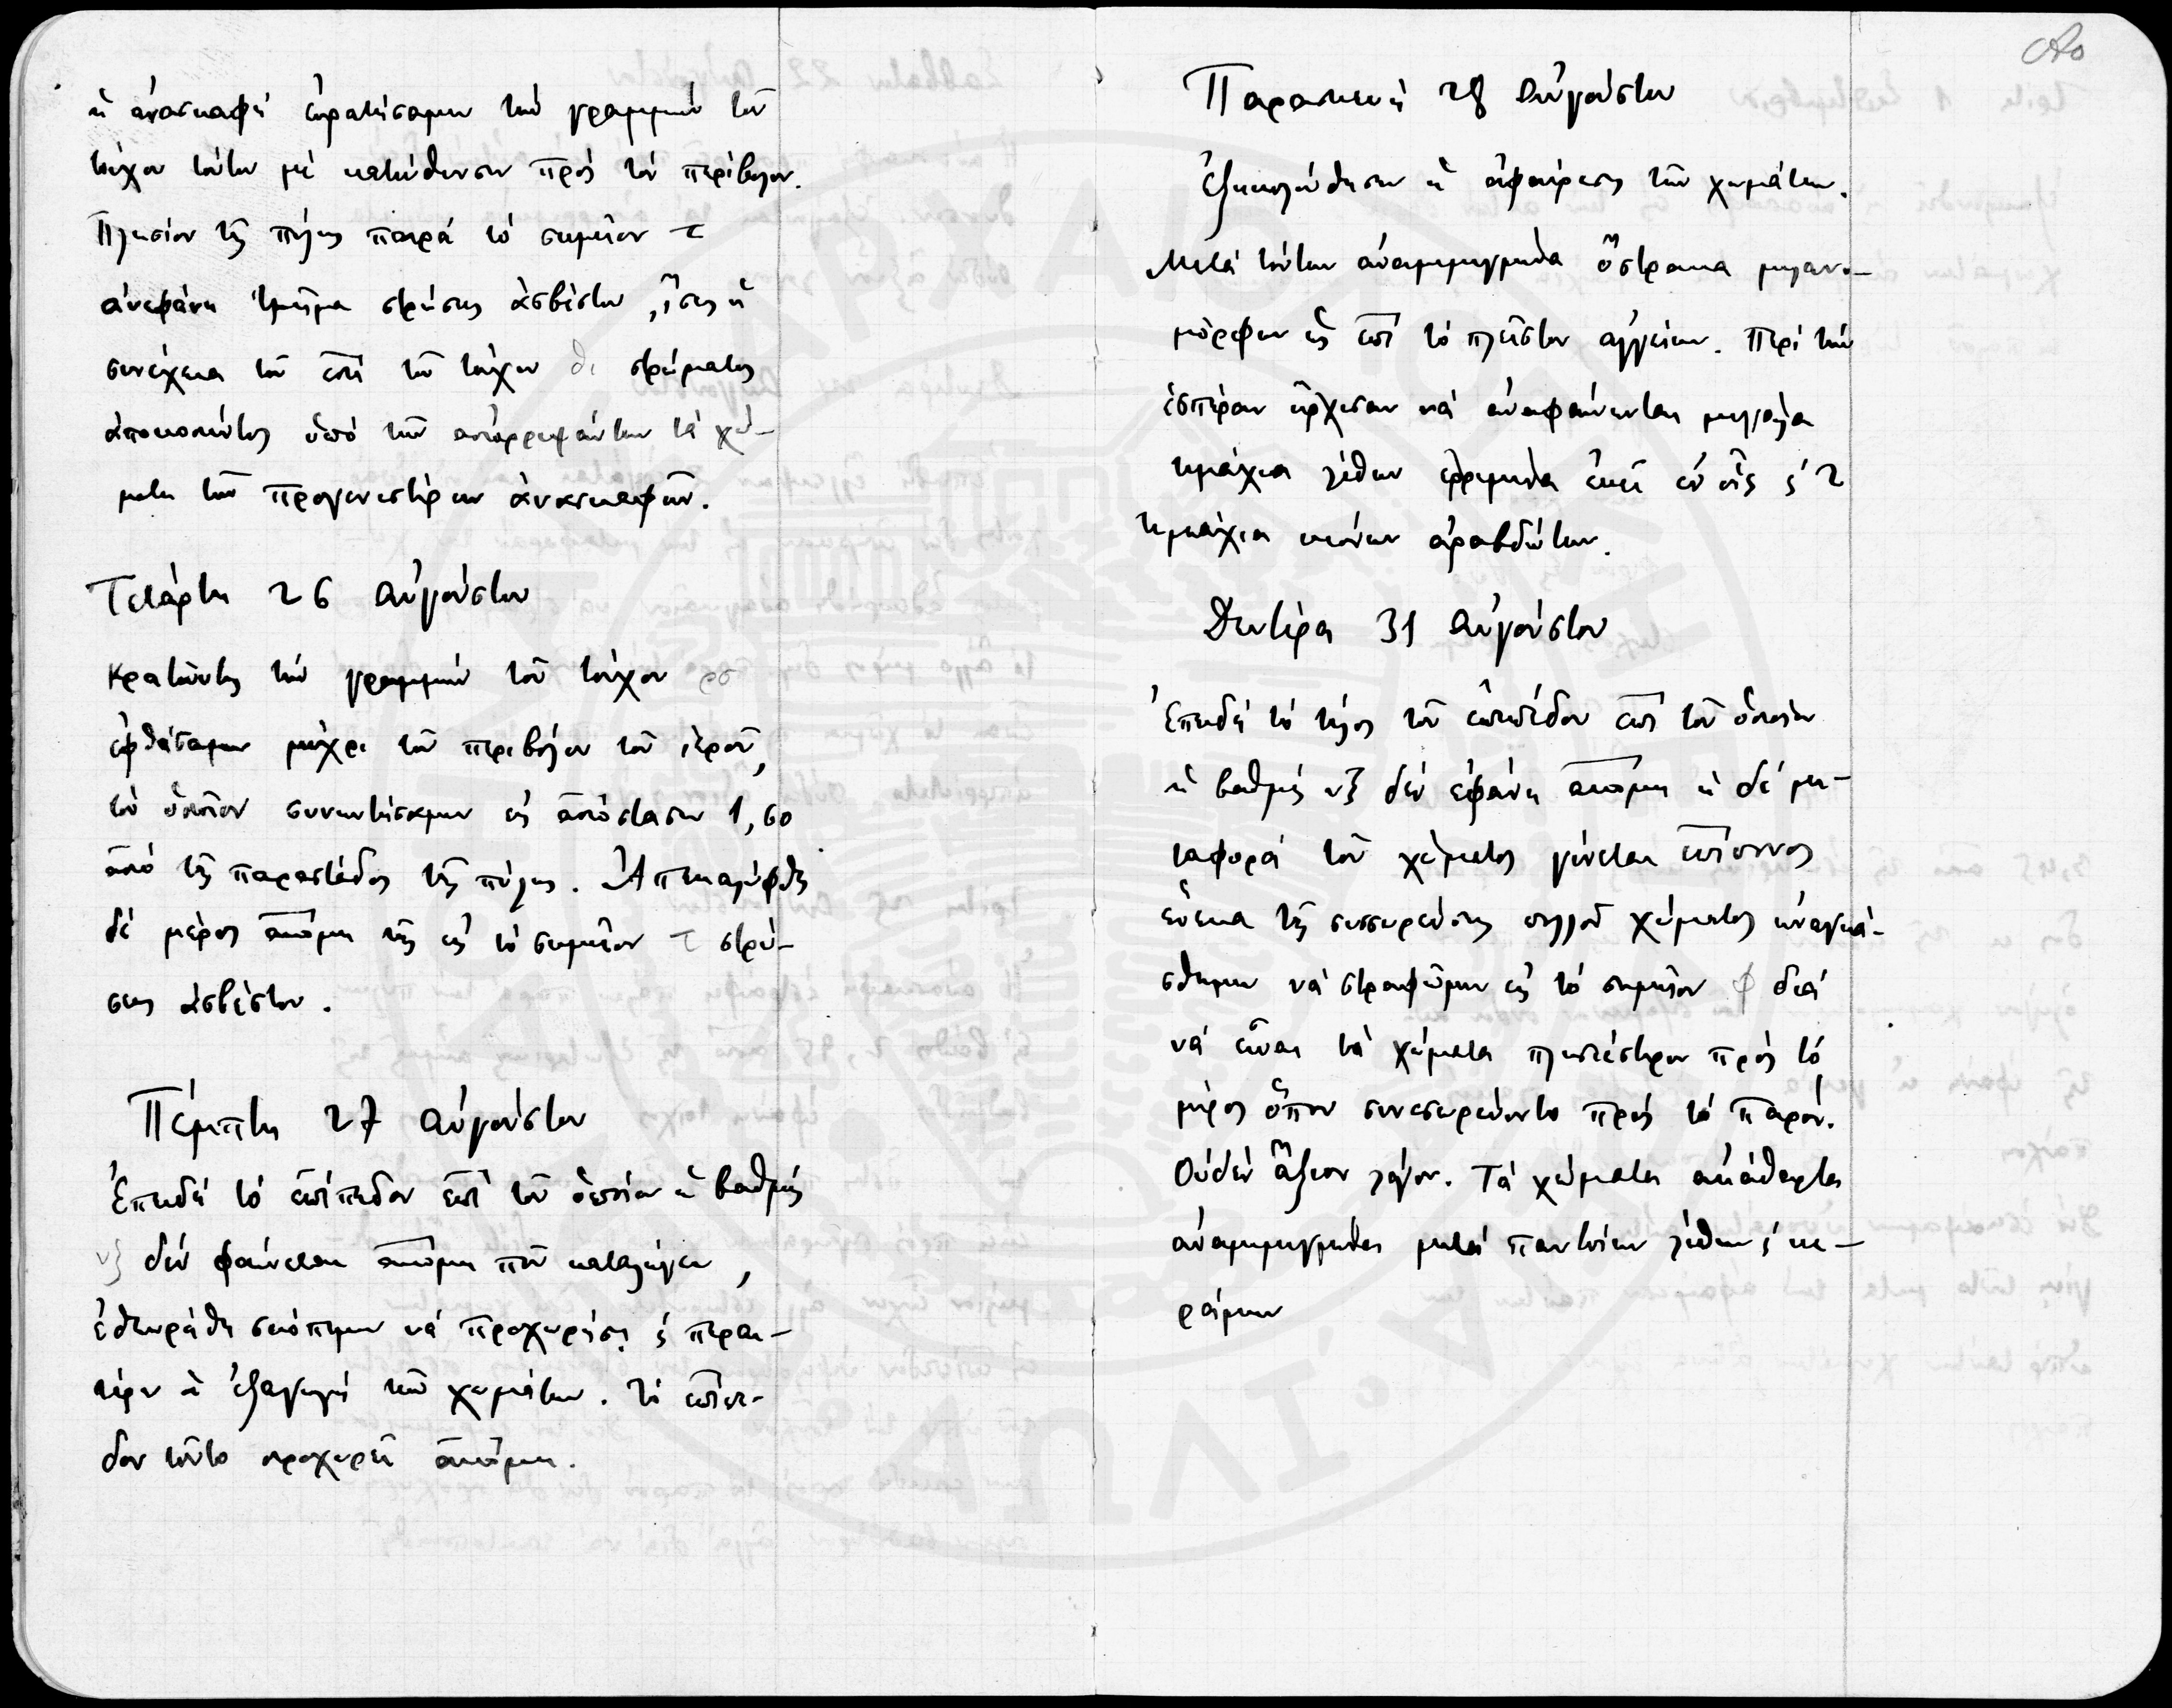 ἡ ἀνασκαφὴ ἐκρατήσαμεν τὴν γραμμὴν τοῦ
τοίχου τούτου μὲ κατεύθυνσιν πρὸς τὸν περίβολον.
Πλησίον τῆς πύλης παρὰ τὸ σημεῖον τ
ἀνεφάνη τμῆμα στρώσεως ἀσβέστου, ἴσως ἡ
συνέχεια τοῦ ἐπὶ τοῦ τοίχου θι στρώματος
ἀποκοπέντος ὑπὸ τῶν ἀπορριψάντων τὰ χώ-
ματα τῶν προγενεστέρων ἀνασκαφῶν.
Τετάρτη 26 Αὐγούστου
Κρατοῦντες τὴν γραμμὴν τοῦ τοίχου ρσ
ἐφθάσαμεν μέχρι τοῦ περιβόλου τοῦ ἱεροῦ,
τὸν ὁποῖον συνηντήσαμεν εἰς ἀπόστασιν 1,60
ἀπὸ τῆς παραστάδος τῆς πύλης. Ἀπεκαλύφθη
δὲ μέρος ἀκόμη τῆς εἰς τὸ σημεῖον τ στρώ-
σεως ἀσβέστου.
Πέμπτη 27 Αὐγούστου
Ἐπειδὴ τὸ ἐπίπεδον ἐπὶ τοῦ ὁποίου ἡ βαθμὶς
νξ δὲν φαίνεται ἀκόμη ποῦ καταλήγει,
ἐθεωρήθη σκόπιμον νὰ προχωρήσῃ ϛ περαι-
τέρω ἡ ἐξαγωγὴ τῶν χωμάτων. Τὸ ἐπίπε-
δον τοῦτο προχωρεῖ ἀκόμη.
Παρασκευὴ 28 Αὐγούστου
Ἐξηκολούθησεν ἡ ἀφαίρεσις τῶν χωμάτων.
Μετὰ τούτων ἀναμεμιγμένα ὄστρακα μελανο-
μόρφων ὡς ἐπὶ τὸ πλεῖστον ἀγγείων. Περὶ τὴν
ἑσπέραν ἤρχισαν νὰ ἀναφαίνωνται μεγάλα
τεμάχια λίθων ἐρριμμένα ἐκεῖ ἐν οἷς ϛ 2
τεμάχια κιόνων ἀραβδώτων.
Δευτέρα 31 Αὐγούστου
Ἐπειδὴ τὸ τέλος τοῦ ἐπιπέδου ἐπὶ τοῦ ὁποίου
ἡ βαθμὶς νξ δὲν ἐφάνη ἀκόμη ἡ δὲ με-
ταφορὰ τοῦ χώματος γίνεται ἐπίπονος
ἕνεκα τῆς συσσωρεύσεως πολλοῦ χώματος ἠναγκά-
σθημεν νὰ στραφῶμεν εἰς τὸ σημεῖον φ διὰ
νὰ εἶναι τὰ χώματα πλησιέστερον πρὸς τὸ
μέρος ὅπου συνεσωρεύοντο πρὸς τὸ παρόν.
Οὐδὲν ἄξιον λόγου. Τὰ χώματα ἀκάθαρτα
ἀναμεμιγμένα μετὰ παντοίων λίθων ϛ κε-
ράμων